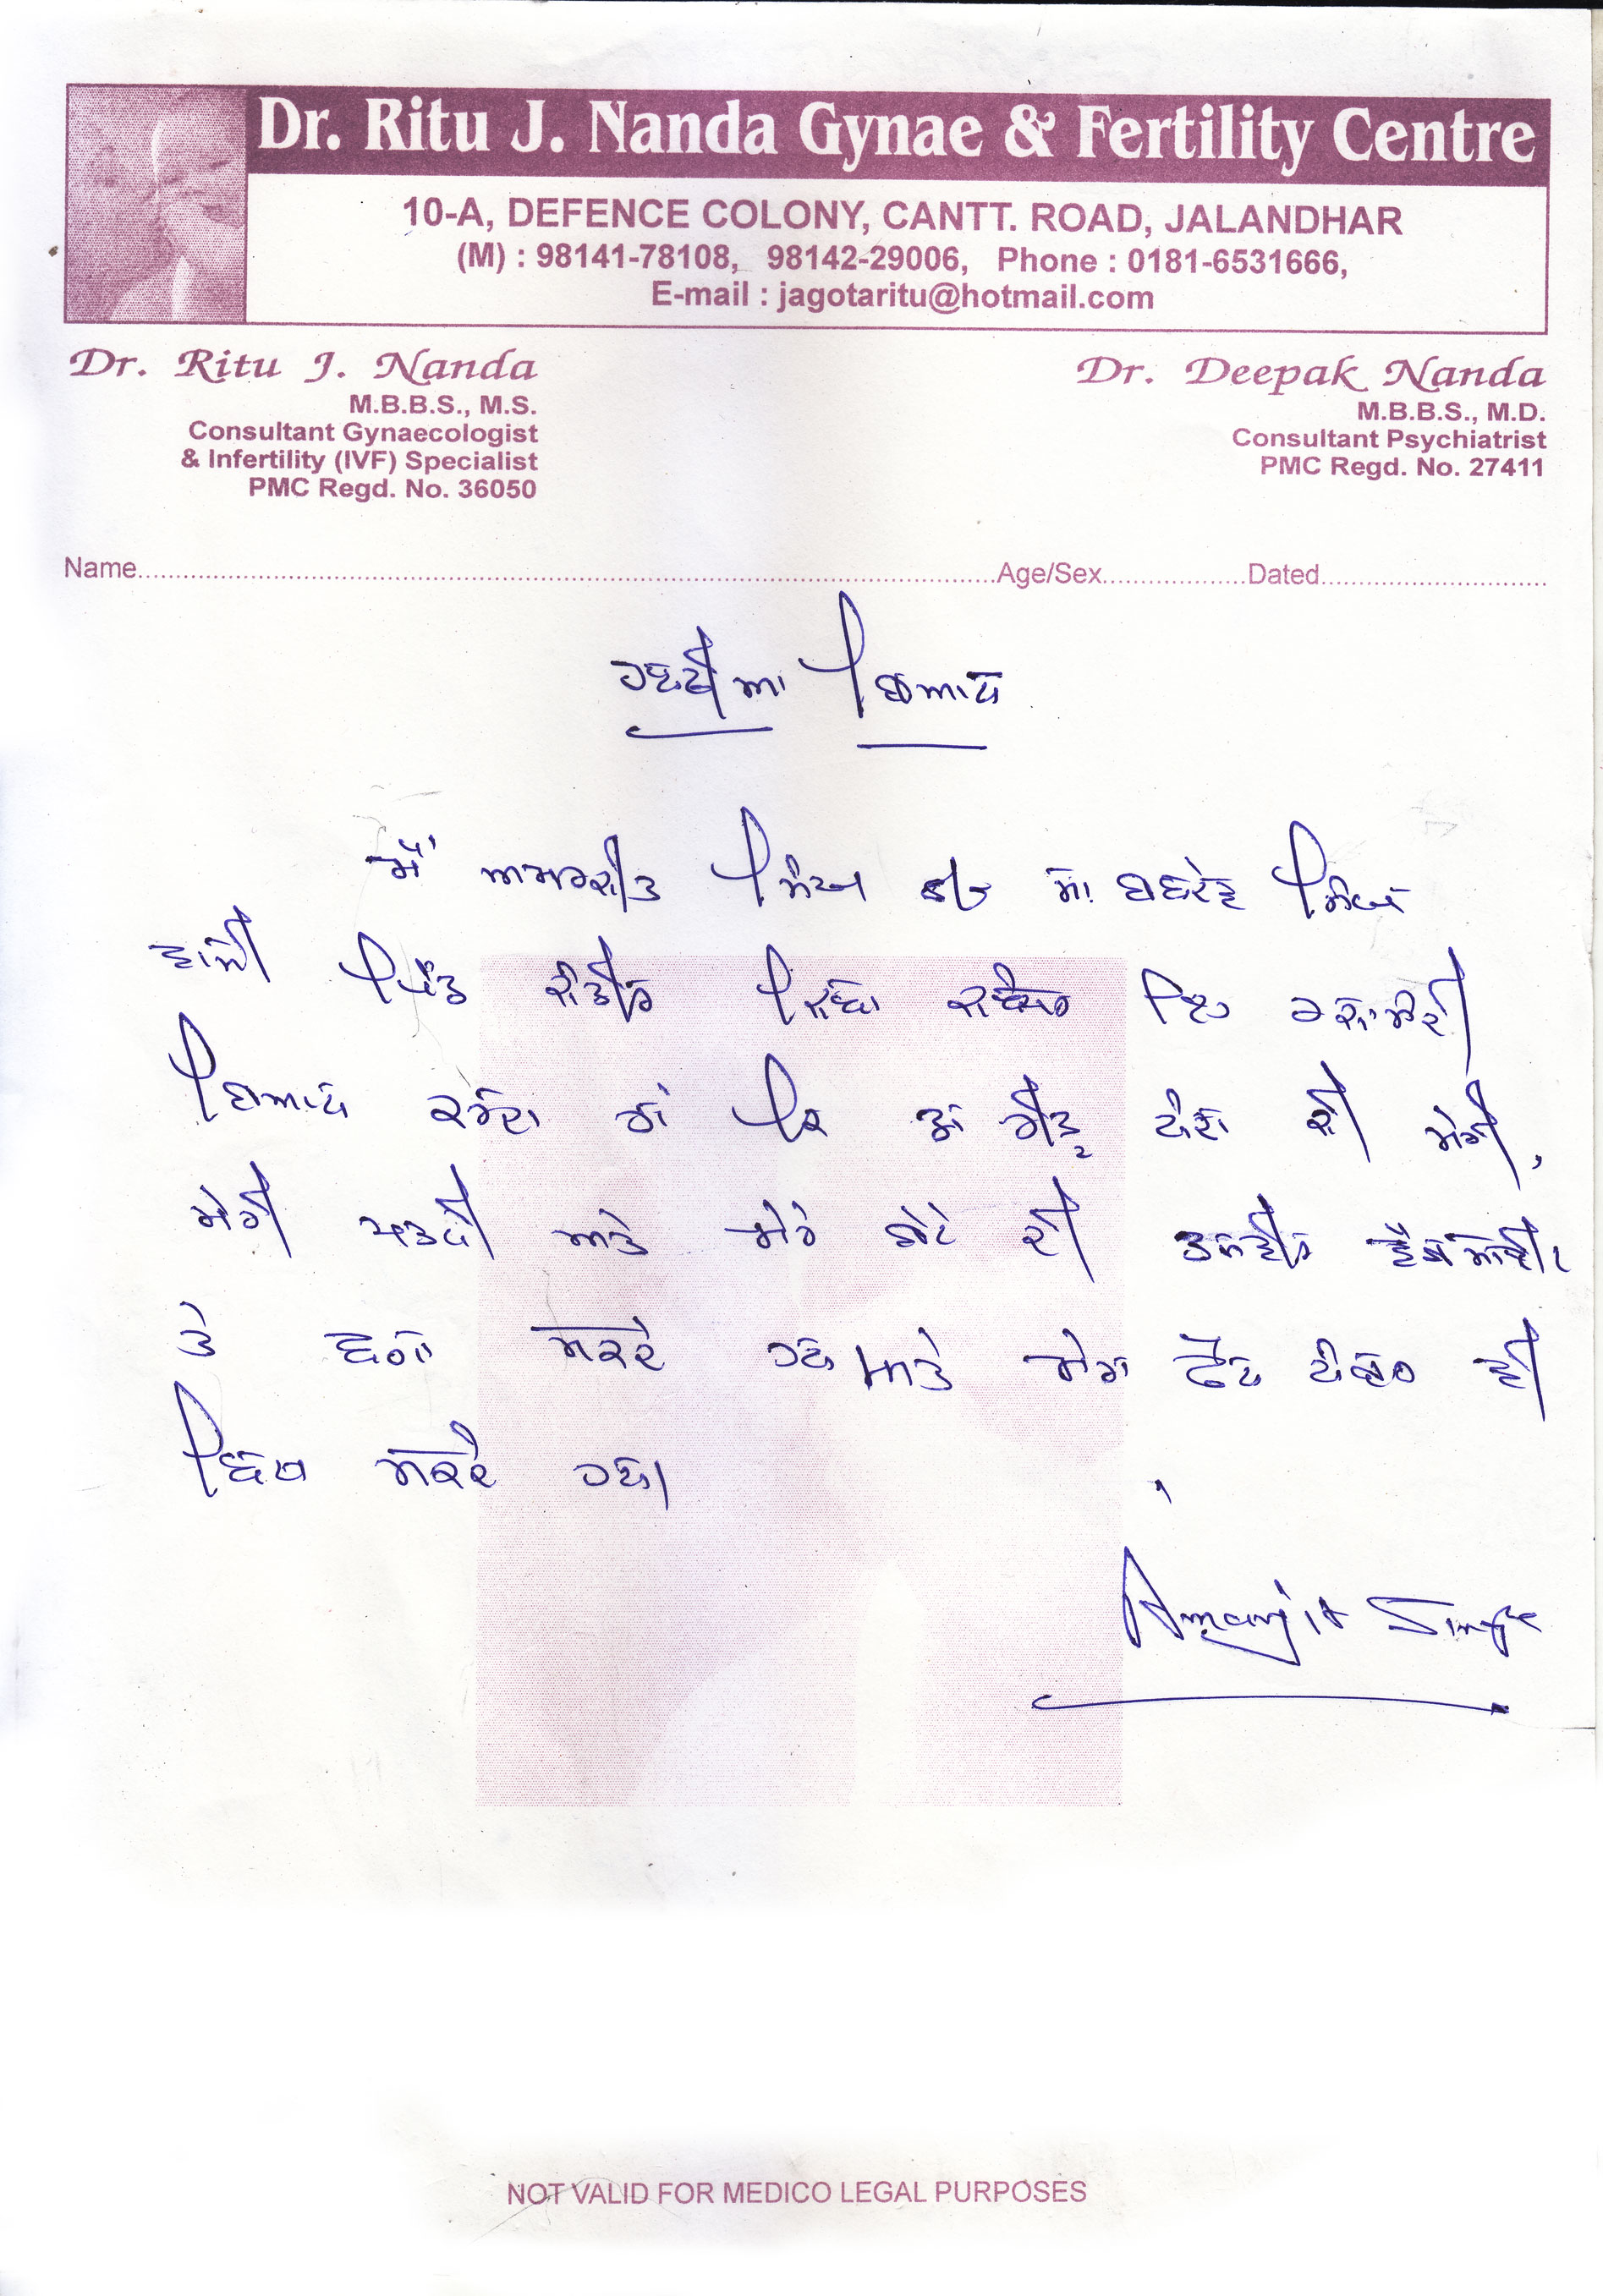 Dr. Ritu J. Nanda Gynae & Fertility Centre
10-A, DEFENCE COLONY, CANTT. ROAD, JALANDHAR
(M) : 98141-78108, 98142-29006, Phone : 0181-6531666,
E-mail : jagotaritu@hotmail.com
Dr. Ritu J. Nanda
M.B.B.S., M.S.
Consultant Gynaecologist
& Infertility (IVF) Specialist
PMC Regd. No. 36050
Dr. Deepak Nanda
M.B.B.S., M.D.
Consultant Psychiatrist
PMC Regd. No. 27411
Name Age/Sex Dated
ਹਲਫੀਆ ਬਿਆਨ
ਮੈਂ ਅਮਰਜੀਤ ਸਿੰਘ ਸ੍ਰ. ਸਿੰਘ
ਵਾਸੀ ਪਿੰਡ ਜਿਲ੍ਹਾ ਜਲੰਧਰ ਇਹ ਰਜਾਮੰਦੀ
ਬਿਆਨ ਕਰਦਾ ਹਾਂ ਕਿ ਡਾ ਰੀਤੂ ਨੰਦਾ ਜੀ ਮੇਰੀ,
ਮੇਰੀ ਪਤਨੀ ਅਤੇ ਮੇਰੇ ਬੇਟੇ ਦੀ ਤਸਵੀਰ ਵੈਬਸਾਈਟ
ਤੇ ਲਗਾ ਸਕਦੇ ਹਨ ਅਤੇ ਮੇਰਾ ਫੋਨ ਨੰਬਰ ਵੀ
ਲਿਖ ਸਕਦੇ ਹਨ।
Amarjit Singh
NOT VALID FOR MEDICO LEGAL PURPOSES